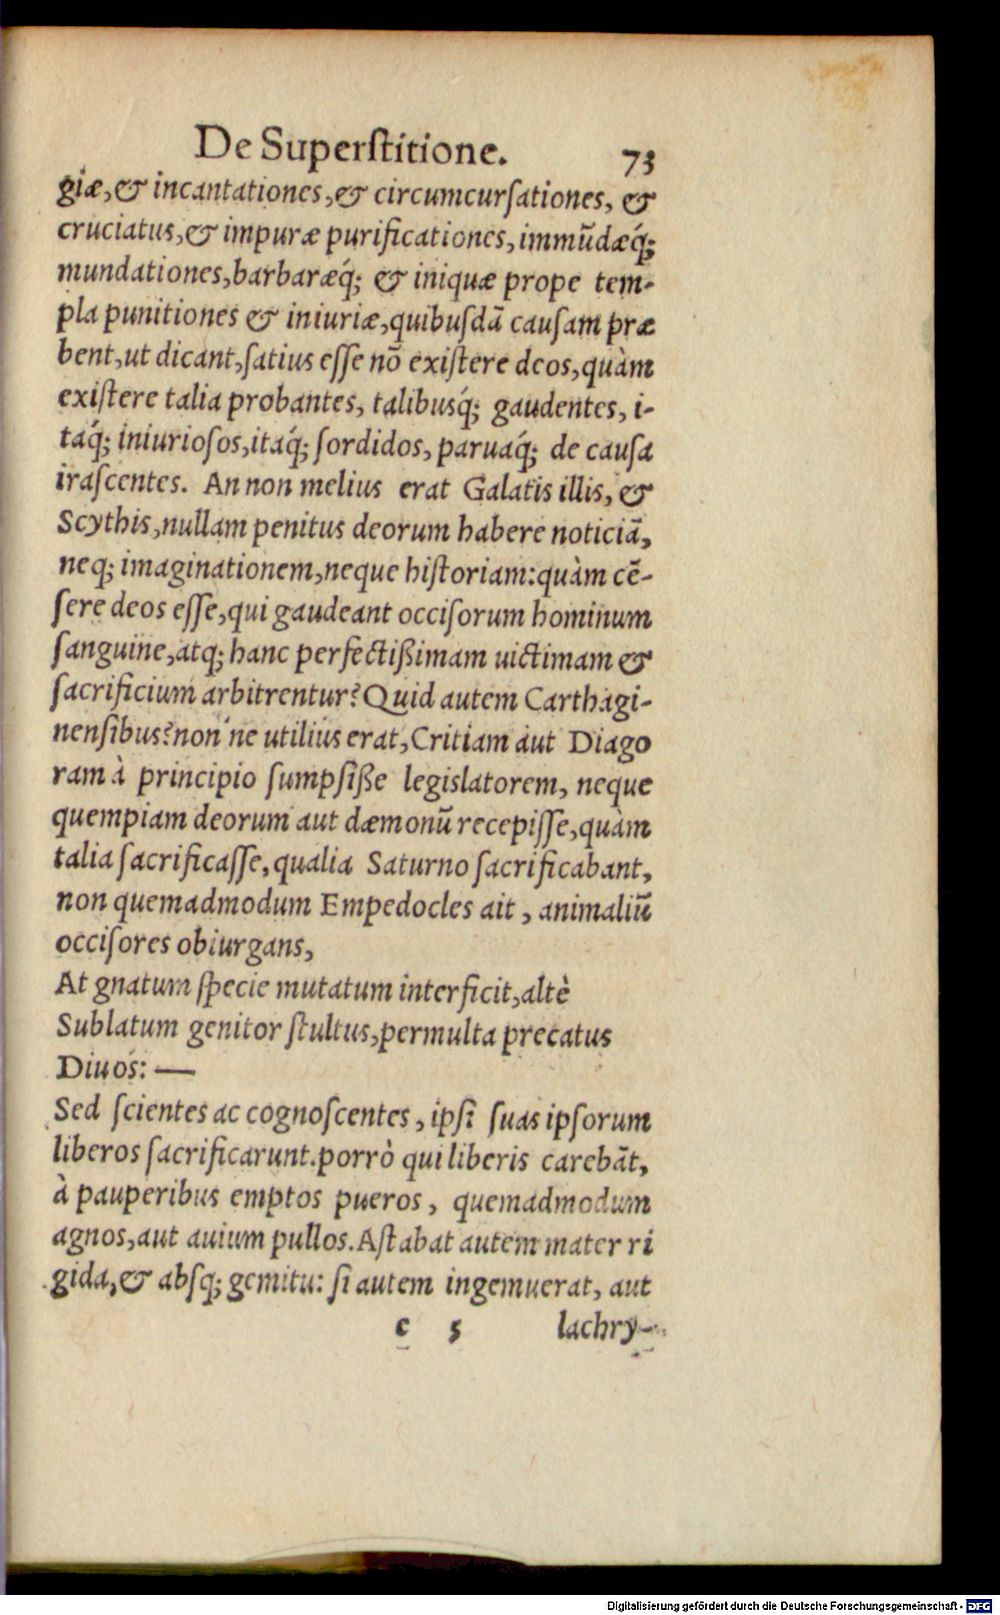 De Superſtitione. 73
giæ,& incantationes,& circumcurſationes, &
cruciatus,& impuræ purificationes, immūdæq́;
mundationes,barbaræq́; & iniquæ prope tem-
pla punitiones & iniuriæ,quibuſdā cauſam præ
bent,ut dicant,ſatius eſſe nō exiſtere deos,quàm
exiſtere talia probantes, talibusq́; gaudentes, i-
taq́; iniurioſos,itaq́; ſordidos, paruaq́; de cauſa
iraſcentes. An non melius erat Galatis illis, &
Scythis,nullam penitus deorum habere noticiā,
neq; imaginationem,neque hiſtoriam:quàm cē-
ſere deos eſſe,qui gaudeant occiſorum hominum
ſanguine,atq; hanc perfectißimam uictimam &
ſacrificium arbitrentur? Quid autem Carthagi-
nenſibus?non´ne utilius erat,Critiam aut Diago
ram à principio ſumpſiße legislatorem, neque
quempiam deorum aut dæmonū recepiſſe,quàm
talia ſacrificaſſe,qualia Saturno ſacrificabant,
non quemadmodum Empedocles ait , animaliū
occiſores obiurgans,
At gnatum ſpecie mutatum interficit,altè
Sublatum genitor ſtultus,permulta precatus
Diuos: —
Sed ſcientes ac cognoſcentes , ipſi ſuas ipſorum
liberos ſacrificarunt.porrò qui liberis carebāt,
à pauperibus emptos pueros , quemadmodum
agnos,aut auium pullos.Aſtabat autem mater ri
gida,& abſq; gemitu: ſi autem ingemuerat, aut
c 5 lachry-
Digitalisierung gefördert durch die Deutsche Forschungsgemeinschaft - DFG